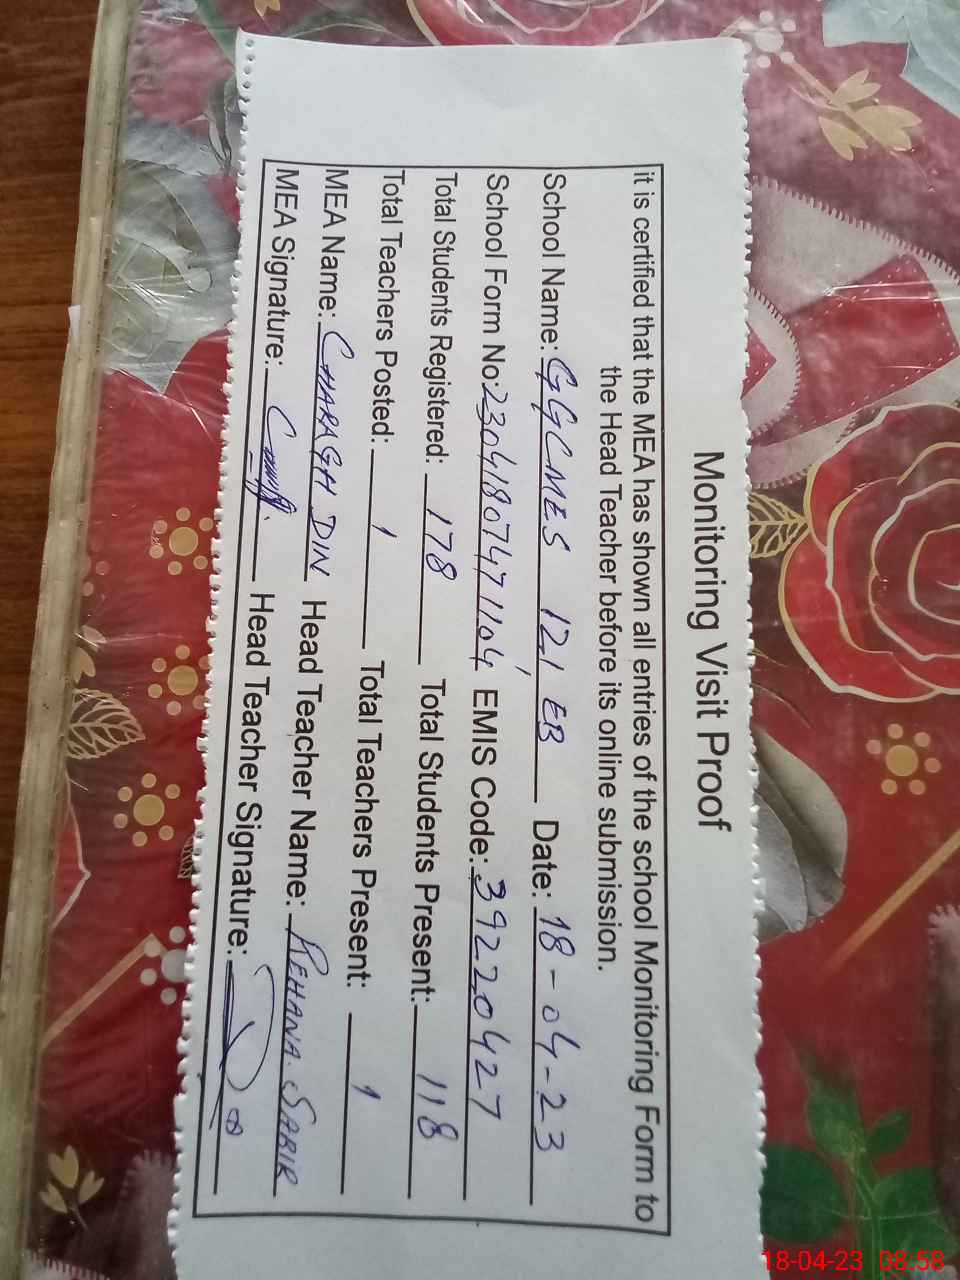 Monitoring Visit Proof
it is certified that the MEA has shown all entries of the school Monitoring Form to
the Head Teacher before its online submission.
School Name: GGCMES 121 EB Date: 18-04-23
School Form No: 230418074711104 EMIS Code: 39220427
Total Students Registered: 178 Total Students Present: 118
Total Teachers Posted: 1 Total Teachers Present: 1
MEA Name: CHARAGH DIN Head Teacher Name: REHANA SABIR
MEA Signature: Head Teacher Signature:
18-04-23 08:58